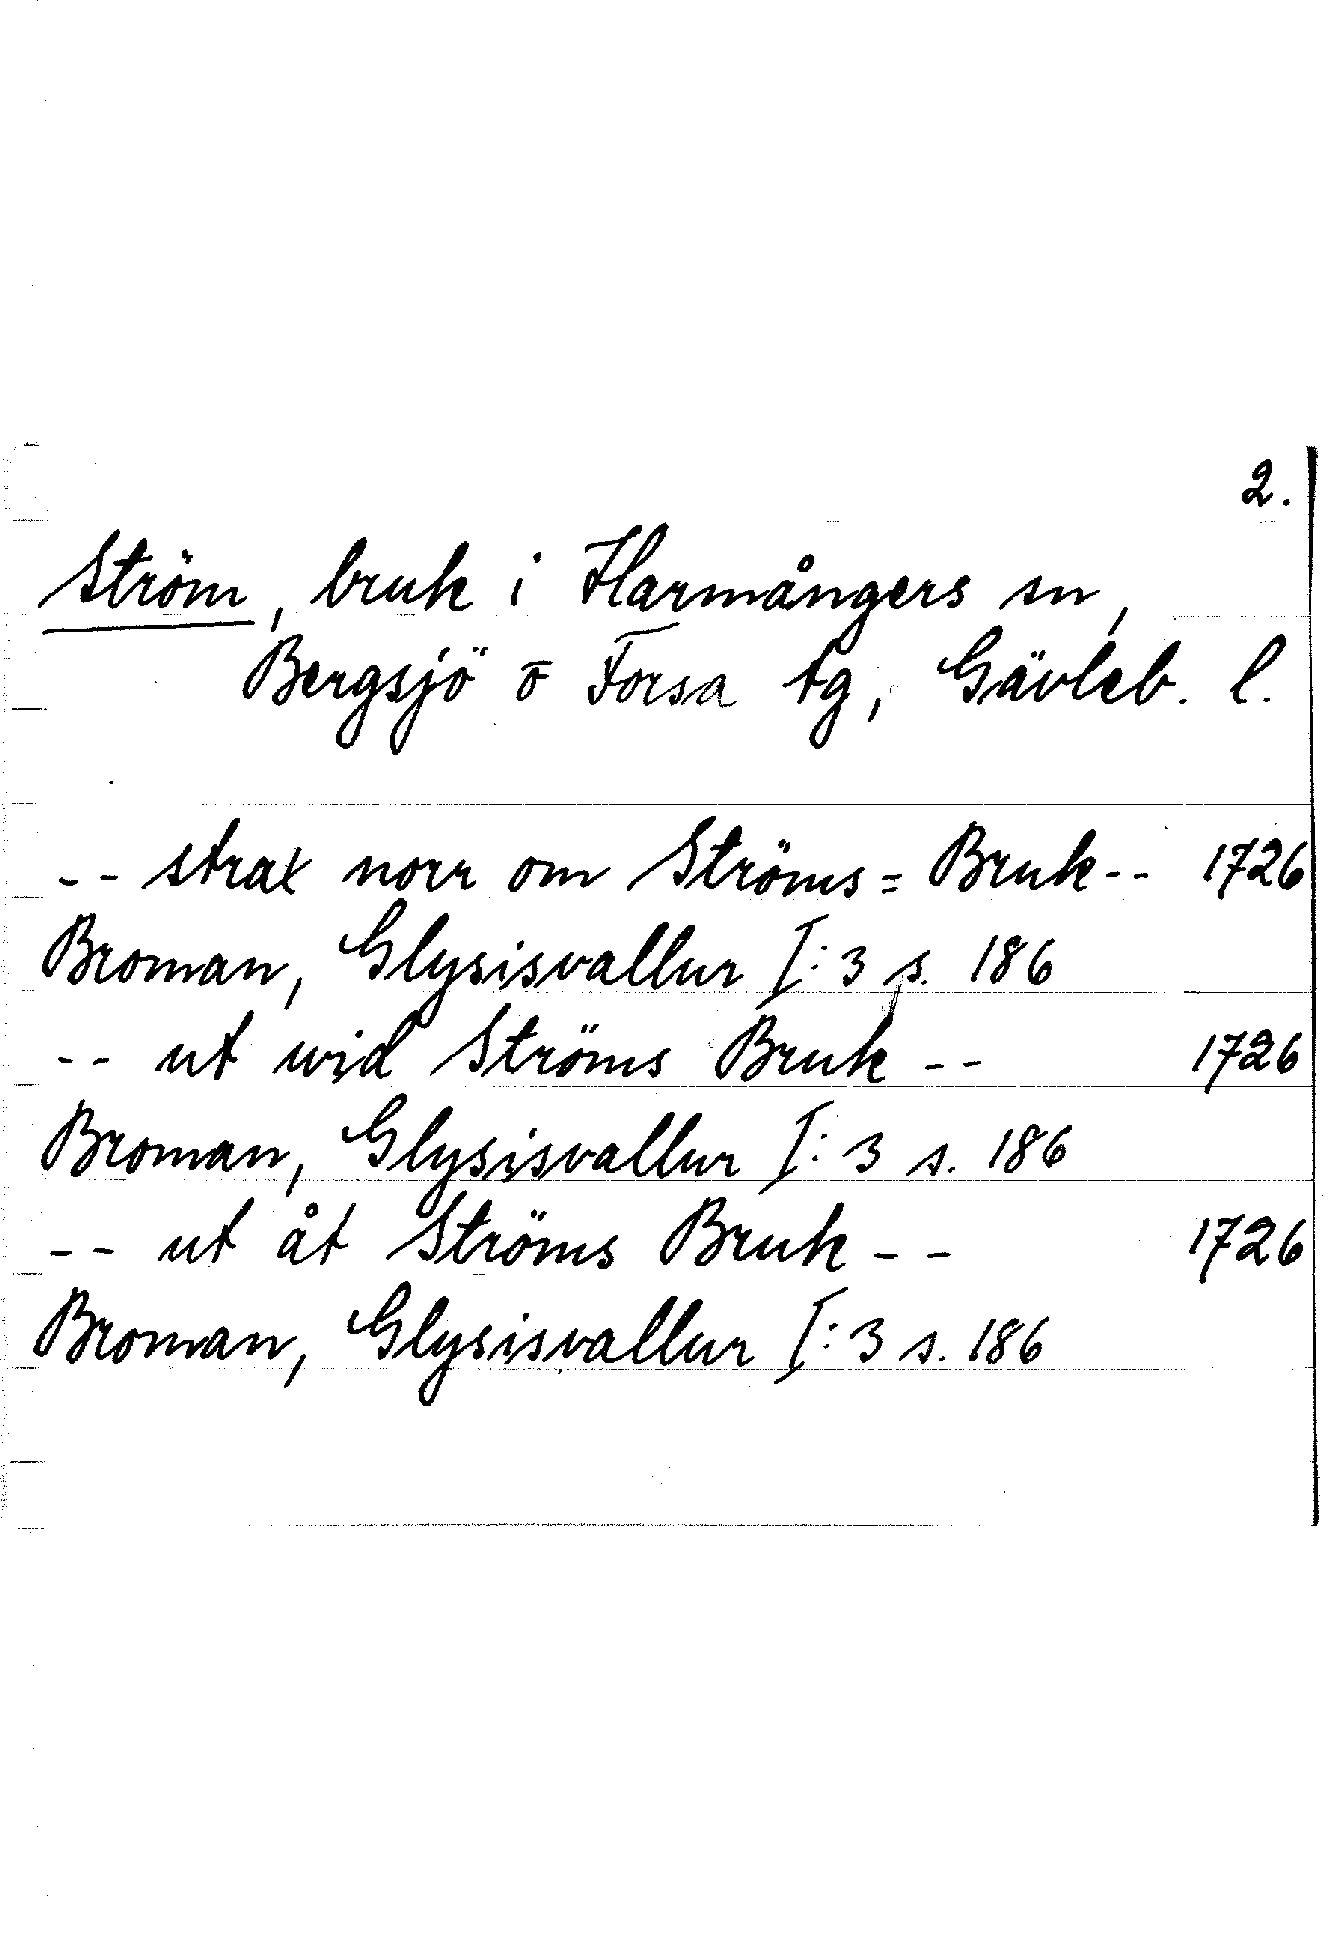 2.
Ström, bruk i Harmångers sn,
Bergsjö o Forsa tg, Gävleb. l.
-- strax norr om Ströms= Bruk-- 1726
Broman, Glysisvallur I:3 s. 186
-- ut wid Ströms Bruk -- 1726
Broman, Glysisvallur I:3 s. 186
-- ut åt Ströms Bruk -- 1726
Broman, Glysisvallur I:3 s. 186